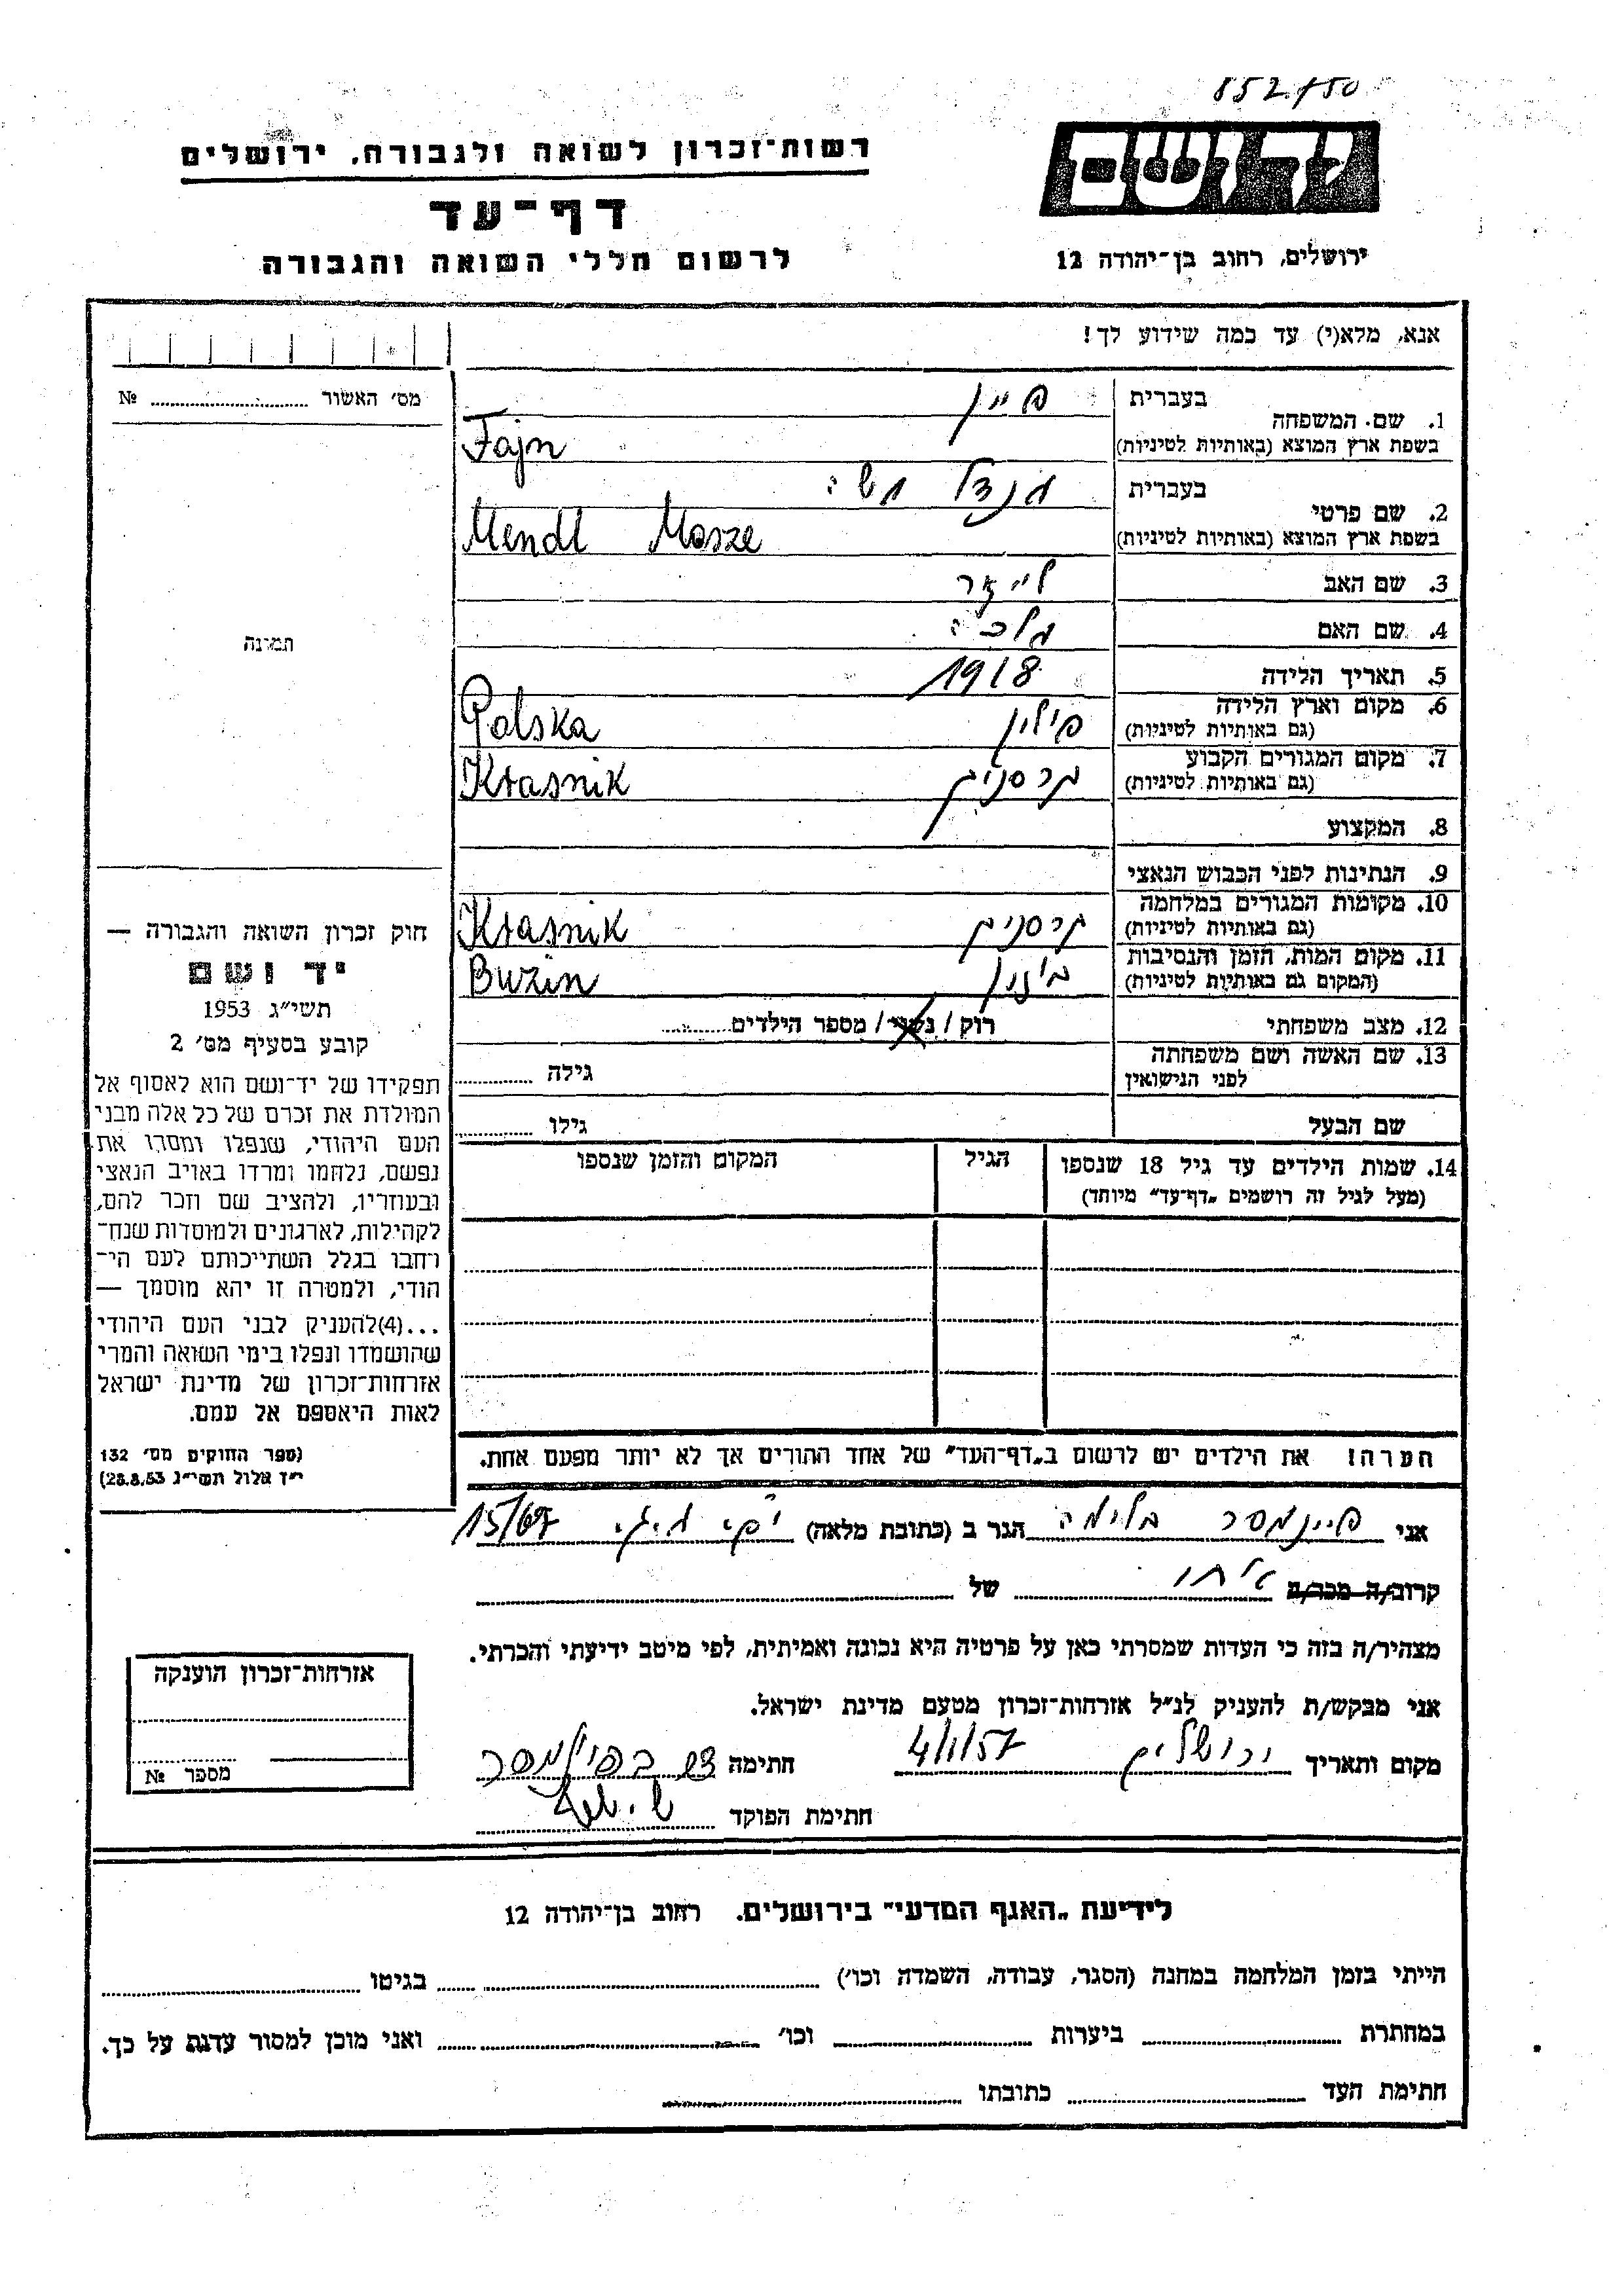 852/50
יד ושם
רשות־זכרון לשואה ולגבורה, ירושלים
דף־עד
לרשום חללי השואה והגבורה
ירושלים, רחוב בן־יהודה 12
אנא, מלא(י) עד כמה שידוע לך!
מס׳ האשור .......... №
1. שם המשפחה בעברית פיין
בשפת ארץ המוצא (באותיות לטיניות) Fajn
2. שם פרטי בעברית מנדל משה
בשפת ארץ המוצא (באותיות לטיניות) Mendl Masze
3. שם האב לייזר
4. שם האם מלכה
5. תאריך הלידה 1918
6. מקום וארץ הלידה (גם באותיות לטיניות) פולין Polska
7. מקום המגורים הקבוע (גם באותיות לטיניות) קרסניק Krasnik
8. המקצוע
9. הנתינות לפני הכבוש הנאצי
10. מקומות המגורים במלחמה (גם באותיות לטיניות) קרסניק Krasnik
11. מקום המות, הזמן והנסיבות (המקום גם באותיות לטיניות) Buzin
12. מצב משפחתי רוק / נשוי / מספר הילדים..........
13. שם האשה ושם משפחתה לפני הנישואין גילה ..........
שם הבעל גילו ..........
14. שמות הילדים עד גיל 18 שנספו
(מעל לגיל זה רושמים „דף־עד” מיוחד)
הגיל
המקום והזמן שנספו
הערה! את הילדים יש לרשום ב„דף־העד” של אחד ההורים אך לא יותר מפעם אחת.
תמונה
חוק זכרון השואה והגבורה —
יד ושם
תשי״ג 1953
קובע בסעיף מס׳ 2
תפקידו של יד־ושם הוא לאסוף אל
המולדת את זכרם של כל אלה מבני
העם היהודי, שנפלו ומסרו את
נפשם, נלחמו ומרדו באויב הנאצי
ובעוזריו, ולהציב שם וזכר להם,
לקהילות, לארגונים ולמוסדות שנח־
רבו בגלל השתייכותם לעם הי־
הודי, ולמטרה זו יהא מוסמך —
...(4)להעניק לבני העם היהודי
שהושמדו ונפלו בימי השואה והמרי
אזרחות־זכרון של מדינת ישראל
לאות היאספם אל עמם.
(ספר החוקים מס׳ 132
י״ז אלול תשי״ג 28.8.53)
אני פיינמסר בלימה הגר ב (כתובת מלאה) 15/67
קרוב/ה מכר/ה אחיו של ..........
מצהיר/ה בזה כי העדות שמסרתי כאן על פרטיה היא נכונה ואמיתית, לפי מיטב ידיעתי והכרתי.
אני מבקש/ת להעניק לנ״ל אזרחות־זכרון מטעם מדינת ישראל.
מקום ותאריך ירושלים 4/1/57 חתימה
חתימת הפוקד
אזרחות־זכרון הוענקה
מספר №
לידיעת „האגף המדעי” בירושלים. רחוב בן־יהודה 12
הייתי בזמן המלחמה במחנה (הסגר, עבודה, השמדה וכו׳) .......... בגיטו ..........
במחתרת .......... ביערות .......... וכו׳ .......... ואני מוכן למסור עדות על כך.
חתימת העד .......... כתובתו ..........